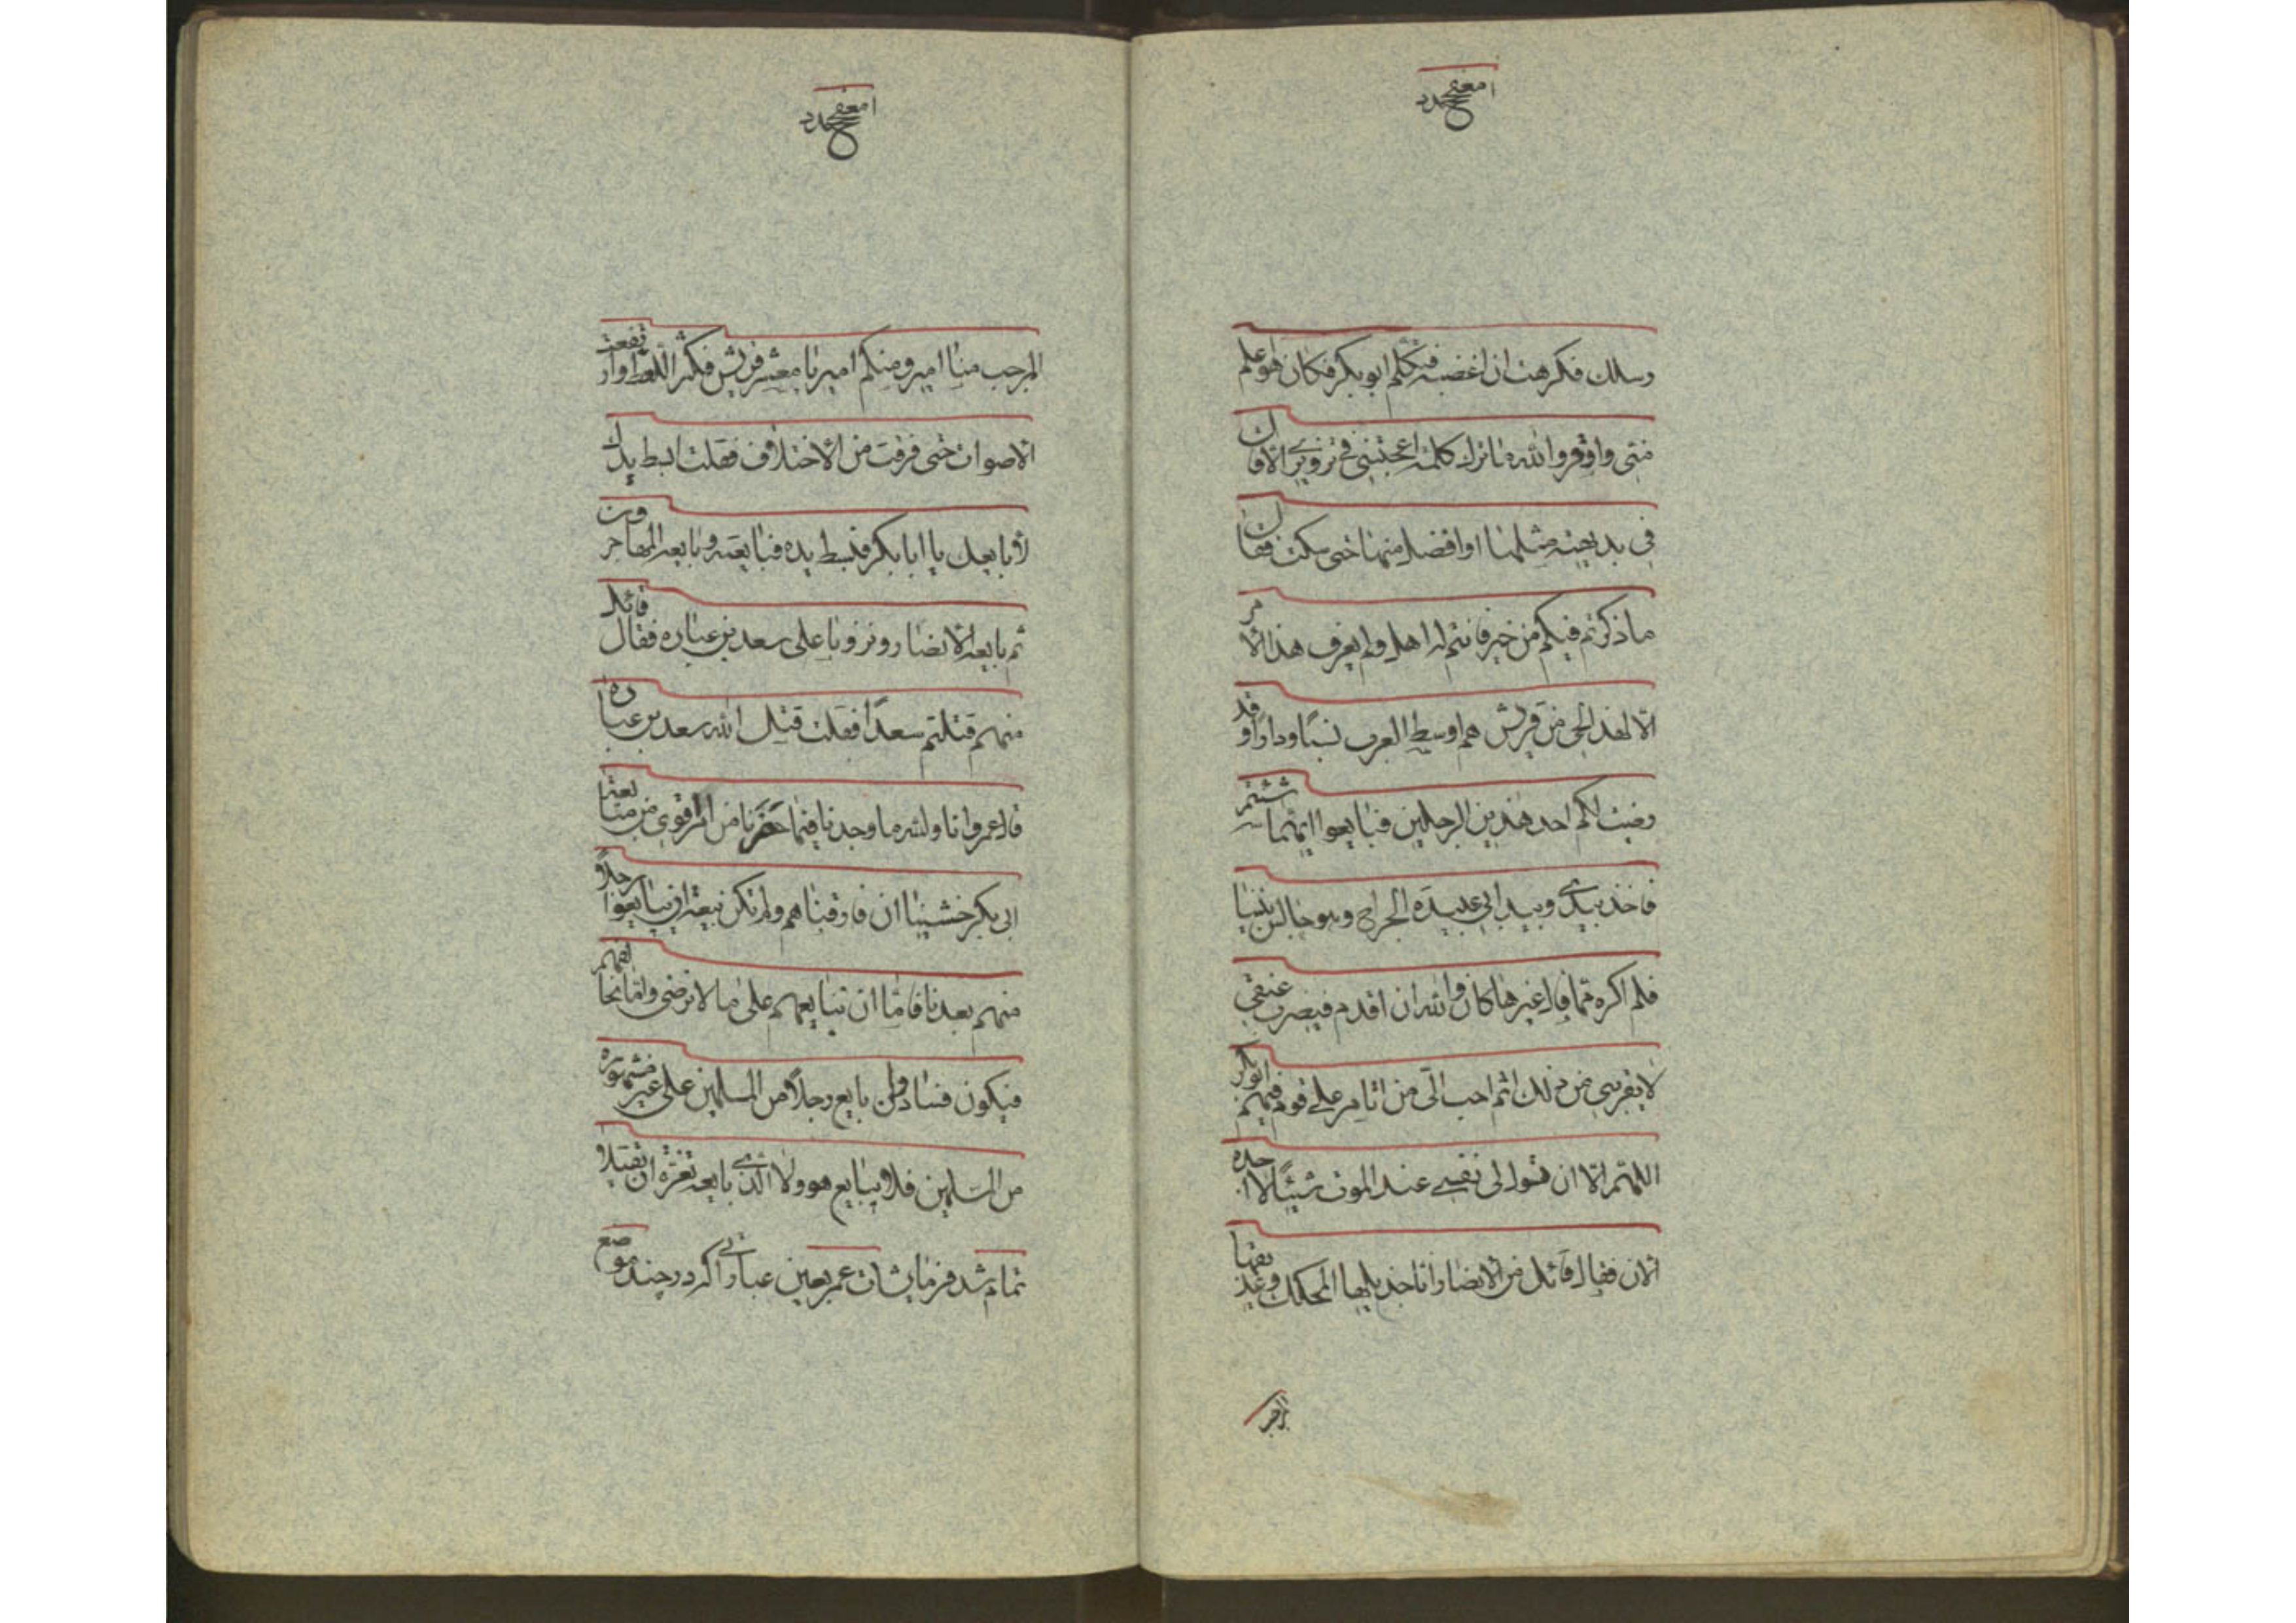 رسلك فكرهت ان اغضبه فتكلم ابوبكر فكان هو اعلم
منى واوقر والله ما ترك كلمة اعجبتنى فى تزويرى الا قال
فى بديهته مثلها او افضل منها حتى سكت فقال
ما ذكرتم فيكم من خير فانتم له اهل ولم يعرف هذا الامر
الا لهذ الحى من قريش هم اوسط العرب نسبًا ودارًا وقد
رضيت لكم احد هذين الرجلين فبايعوا ايهما شئتم
فاخذ بيدى وبيد ابى عبيدة الجراح وهو جالس بيننا
فلم اكره مما قال غيرها كان والله ان اقدم فيضرب عنقى
لا يقربنى من ذلك اثم احب الى من ان اتامر على قوم فيهم ابوبكر
اللهم الا ان تسول لى نفسى عند الموت شيئًا لا اجده
الان فقال قائل من الانصار انا جذيلها المحكك وعذيقها
المرجب منا امير ومنكم امير يا معشر قريش فكثر اللغط وارتفعت
الاصوات حتى فرقت من الاختلاف فقلت ابسط يدك
لابايعك يا ابا بكر فبسط يده فبايعته وبايعه المهاجرون
ثم بايعه الانصار ونزونا على سعد بن عباره فقال قائل
منهم قتلتم سعدًا فقلت قتل الله سعد بن عباره
قال عمر وانا والله ما وجدنا فيما حضرنا من امر اقوى من مبايعة
ابى بكر خشينا ان فارقنا هم ولم تكن بيعة ان يبايعوا رجلًا
منهم بعدنا فاما ان نبايعهم على ما لا نرضى واما نخالفهم
فيكون فساد فمن بايع رجلًا من المسلمين على غير مشورة
من المسلمين فلا يبايع هو ولا الذى بايعه تغرة ان يقتلا
تمام شد فرمايشات عمر بعين عباراتى كه در چند موضع